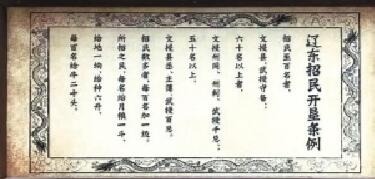 辽东招民开垦条例
招民至百名者，
文授县，武授守备；
六十名以上者，
文授州同、州判，武授千总；
五十名以上，
文授县丞、主簿，武授百总。
招民数多者，每百名加一级。
所招之民，每名给月粮一斗，
每地一垧，给种六升，
每百名给牛二十头。